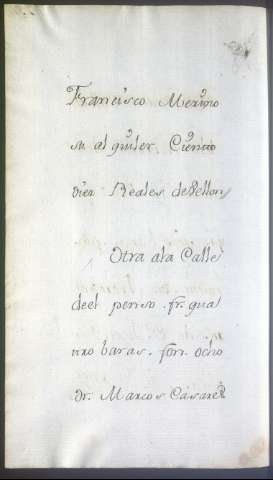 Francisco Merino
su al quiler Ciento
diez Reales de Vellon
Otra ala Calle
deel perso. fr. qua
tro baras. fon. ocho
dr. Marcos Casares